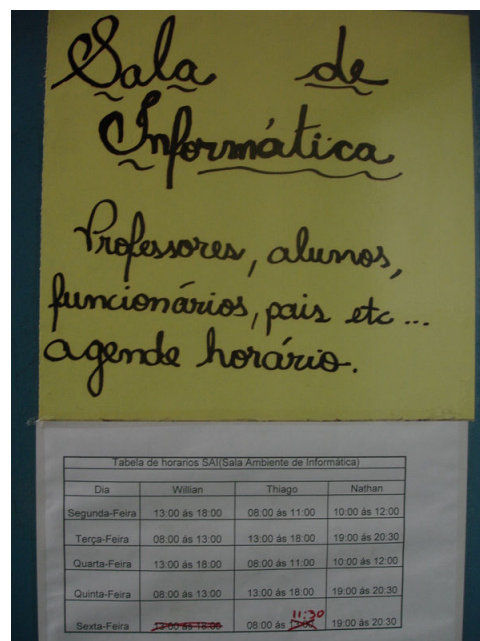 Sala de
Informática
Professores, alunos,
funcionários, pais etc...
agende horário.
Tabela de horarios SAI(Sala Ambiente de Informática)
Dia Willian Thiago Nathan
Segunda-Feira 13:00 ás 18:00 08:00 ás 11:00 10:00 ás 12:00
Terça-Feira 08:00 ás 13:00 13:00 ás 18:00 19:00 ás 20:30
Quarta-Feira 13:00 ás 18:00 08:00 ás 11:00 10:00 ás 12:00
Quinta-Feira 08:00 ás 13:00 13:00 ás 18:00 19:00 ás 20:30
11:30
Sexta-Feira 13:00 ás 18:00 08:00 ás 19:00 ás 20:30